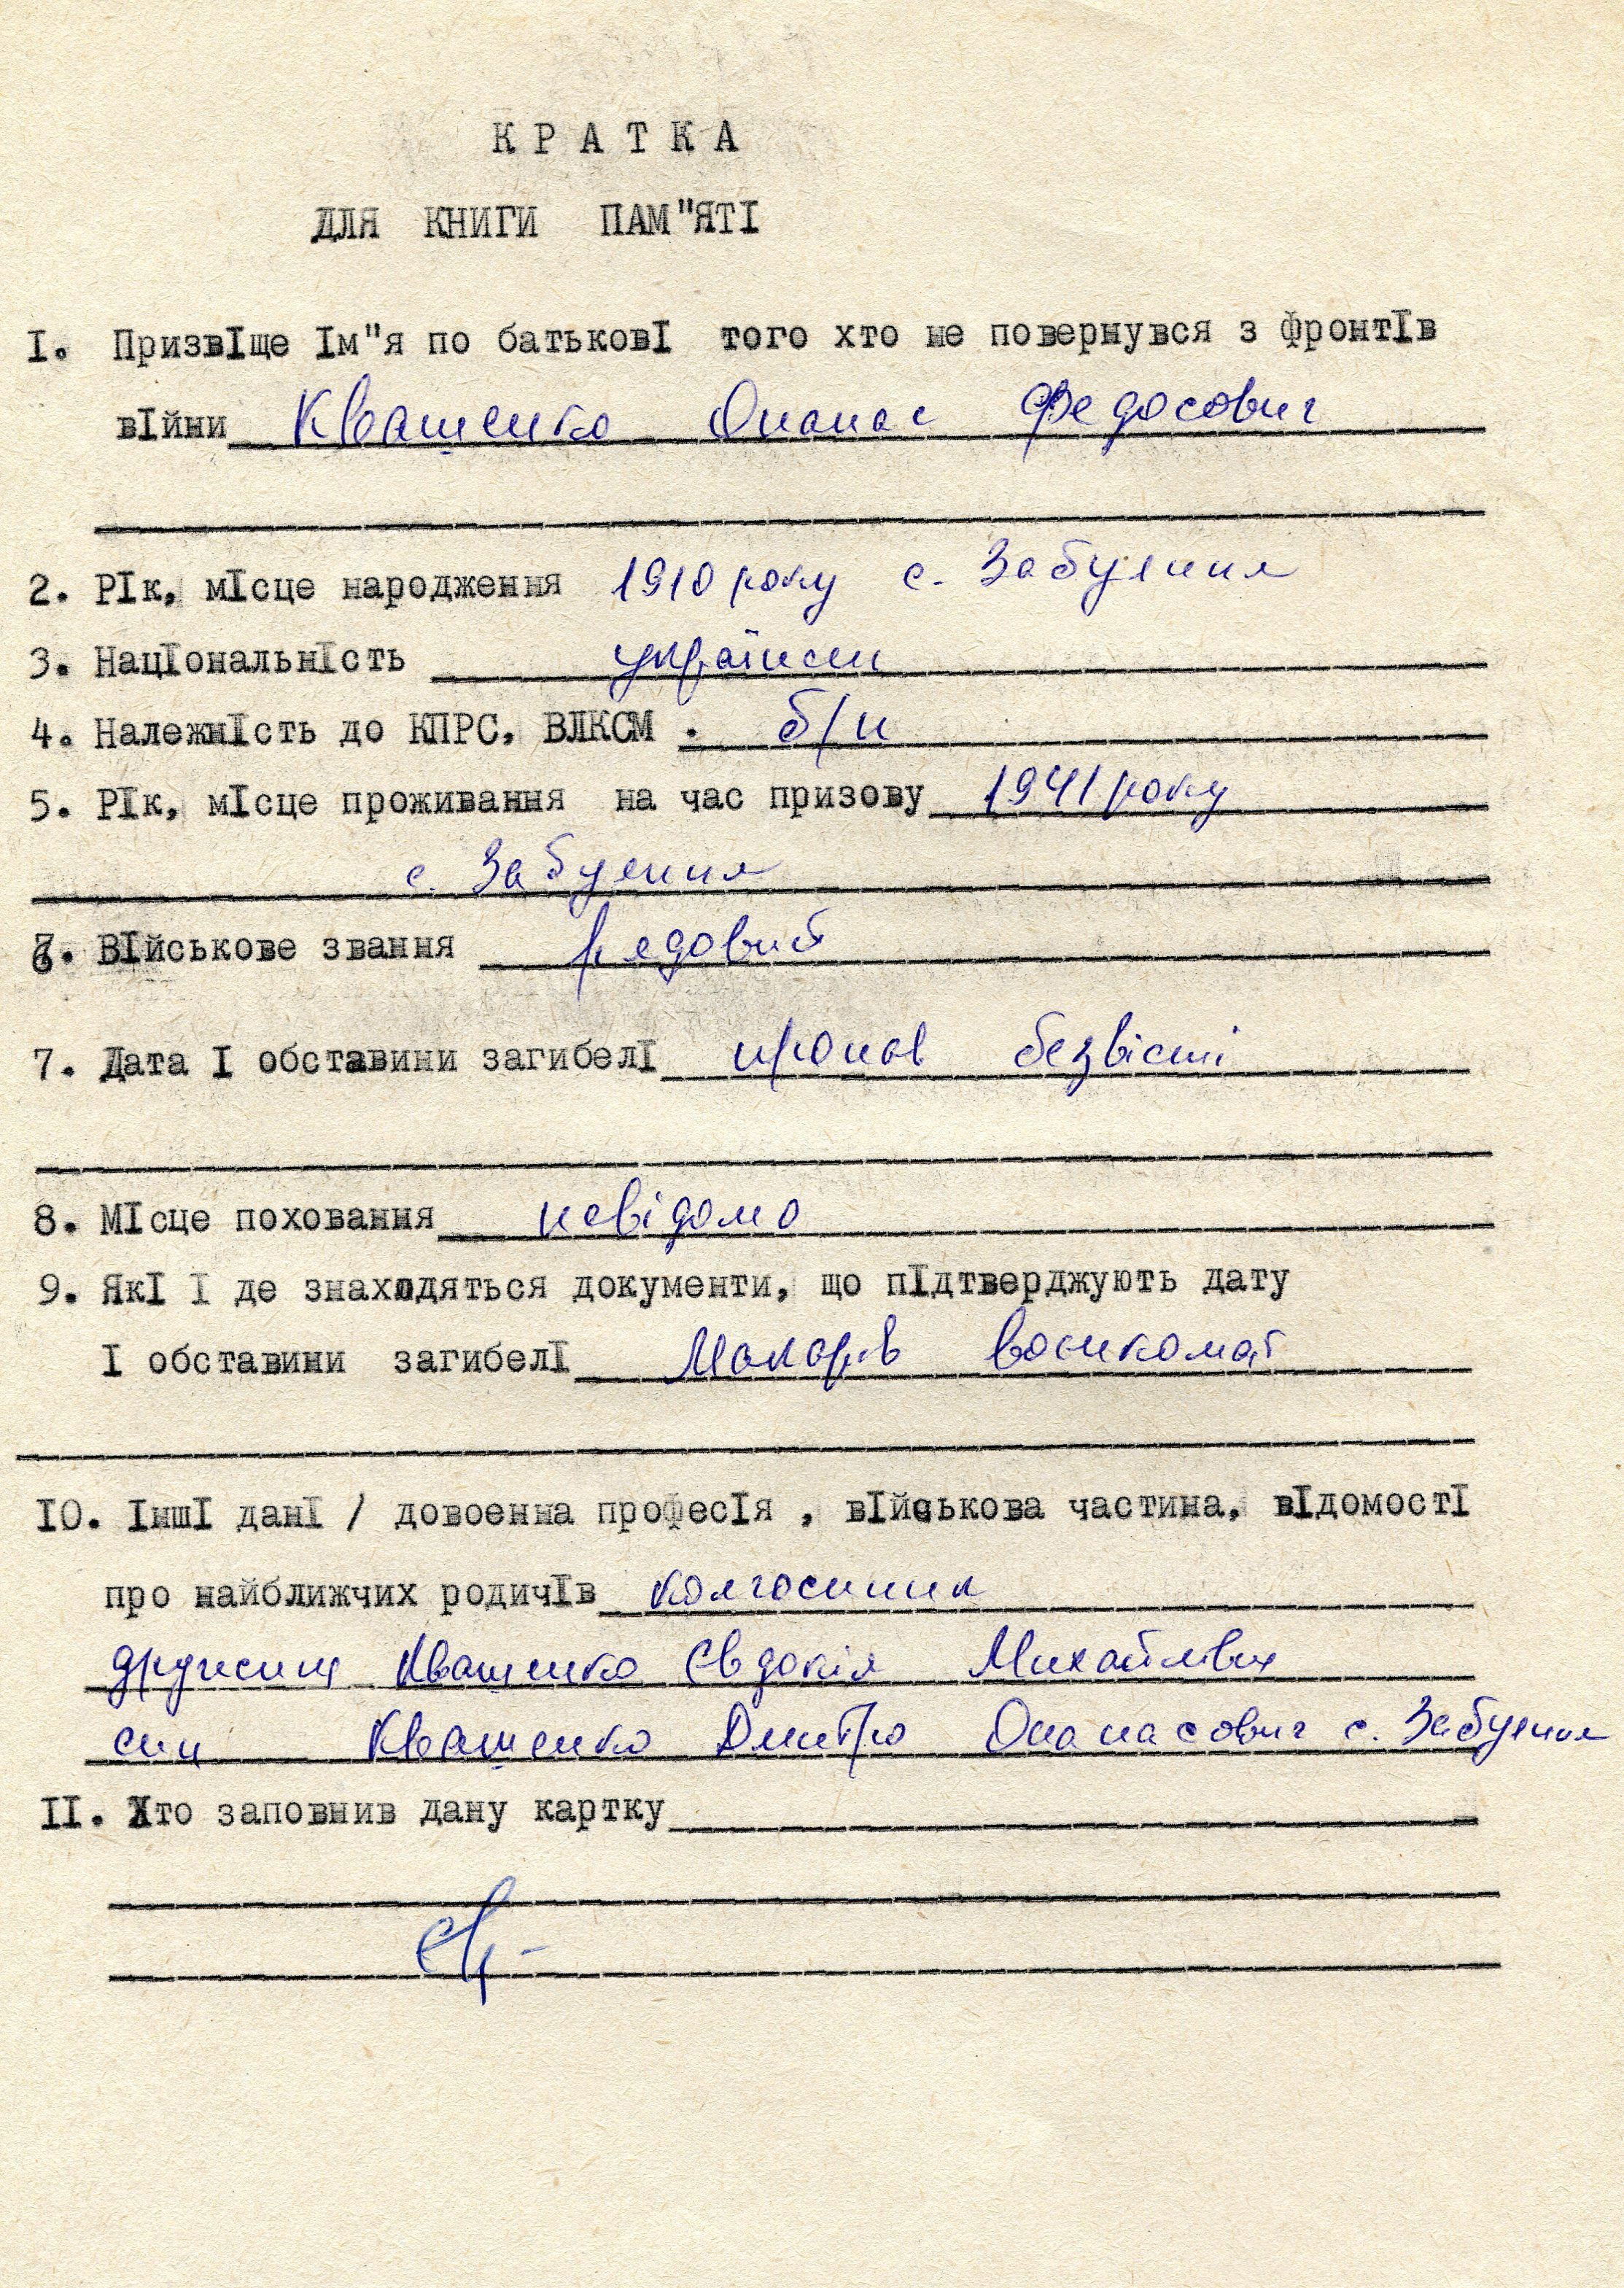 К Р А Т К А
ДЛЯ КНИГИ ПАМ"ЯТІ
І. Призвіще Ім"я по батькові того хто не повернувся з фронтів
війни Квашенко Опанас Федосович
2. Рік, місце народження 1910 року с. Забуяння
3. Національність українець
4. Належність до КПРС, ВЛКСМ . б/п
5. Рік, місце проживання на час призову 1941 року
с. Забуяння
6. Військове звання рядовий
7. Дата І обставини загибелі пропав безвісті
8. Місце поховання невідомо
9. Які І де знаходяться документи, що підтверджують дату
І обставини загибелі Макарів воєнкомат
ІО. Інші дані / довоенна професія , військова частина, відомості
про найближчих родичів колгоспник
дружина Квашенко Євдокія Михайлівна
син Квашенко Дмитро Опанасович с. Забуяння
ІІ. Хто заповнив дану картку